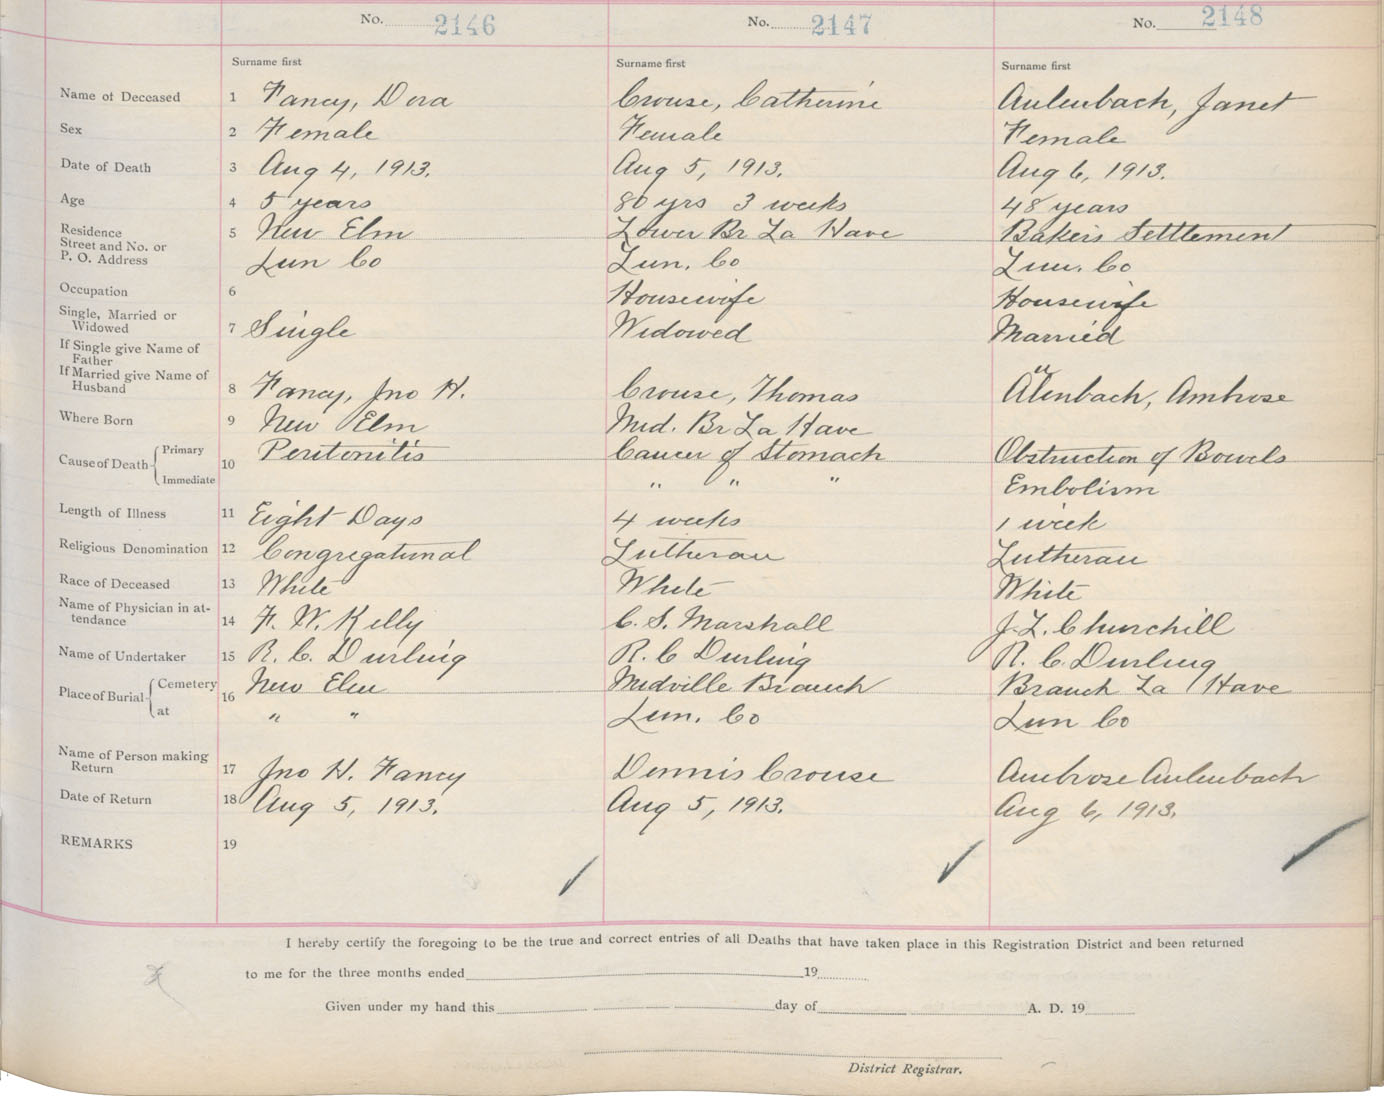 No. 2146 No. 2147 No. 2148
Surname first Surname first Surname first
Name of Deceased 1 Fancy, Dora Crouse, Catherine Aulenbach, Janet
Sex 2 Female Female Female
Date of Death 3 Aug 4, 1913. Aug 5, 1913. Aug 6, 1913.
Age 4 5 years 80 yrs 3 weeks 48 years
Residence 5 New Elm Lower Br La Have Bakers Settlement
Street and No. or
P. O. Address Lun Co Lun. Co Lun. Co
Occupation 6 Housewife Housewife
Single, Married or
Widowed 7 Single Widowed Married
If Single give Name of
Father
If Married give Name of
Husband 8 Fancy, Jno H. Crouse, Thomas Aulenbach, Ambrose
Where Born 9 New Elm Mid. Br La Have
Cause of Death Primary 10 Peritonitis Cancer of Stomach Obstruction of Bowels
Immediate " " " Embolism
Length of Illness 11 Eight Days 4 weeks 1 week
Religious Denomination 12 Congregational Lutheran Lutheran
Race of Deceased 13 White White White
Name of Physician in at-
tendance 14 F. W. Kelly C. S. Marshall J. L. Churchill
Name of Undertaker 15 R. C. Durling R. C Durling R. C. Durling
Place of Burial Cemetery 16 New Elm Midville Branch Branch La Have
at " " Lun. Co Lun Co
Name of Person making
Return 17 Jno H. Fancy Dennis Crouse Ambrose Aulenbach
Date of Return 18 Aug 5, 1913. Aug 5, 1913. Aug 6, 1913.
REMARKS 19
I hereby certify the foregoing to be the true and correct entries of all Deaths that have taken place in this Registration District and been returned
to me for the three months ended 19
Given under my hand this day of A. D. 19
District Registrar.